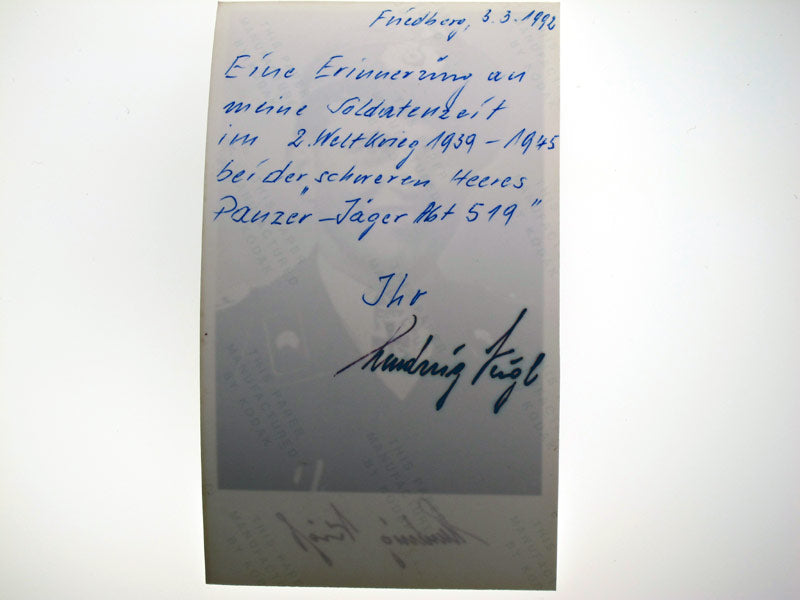 Friedberg, 3.3.1992
Eine Erinnerung an
meine Soldatenzeit
im 2. Weltkrieg 1939 - 1945
bei der „schweren Heeres
Panzer-Jäger Abt 519"
Ihr
Ludwig
THIS PAPER
MANUFACTURED
BY KODAK